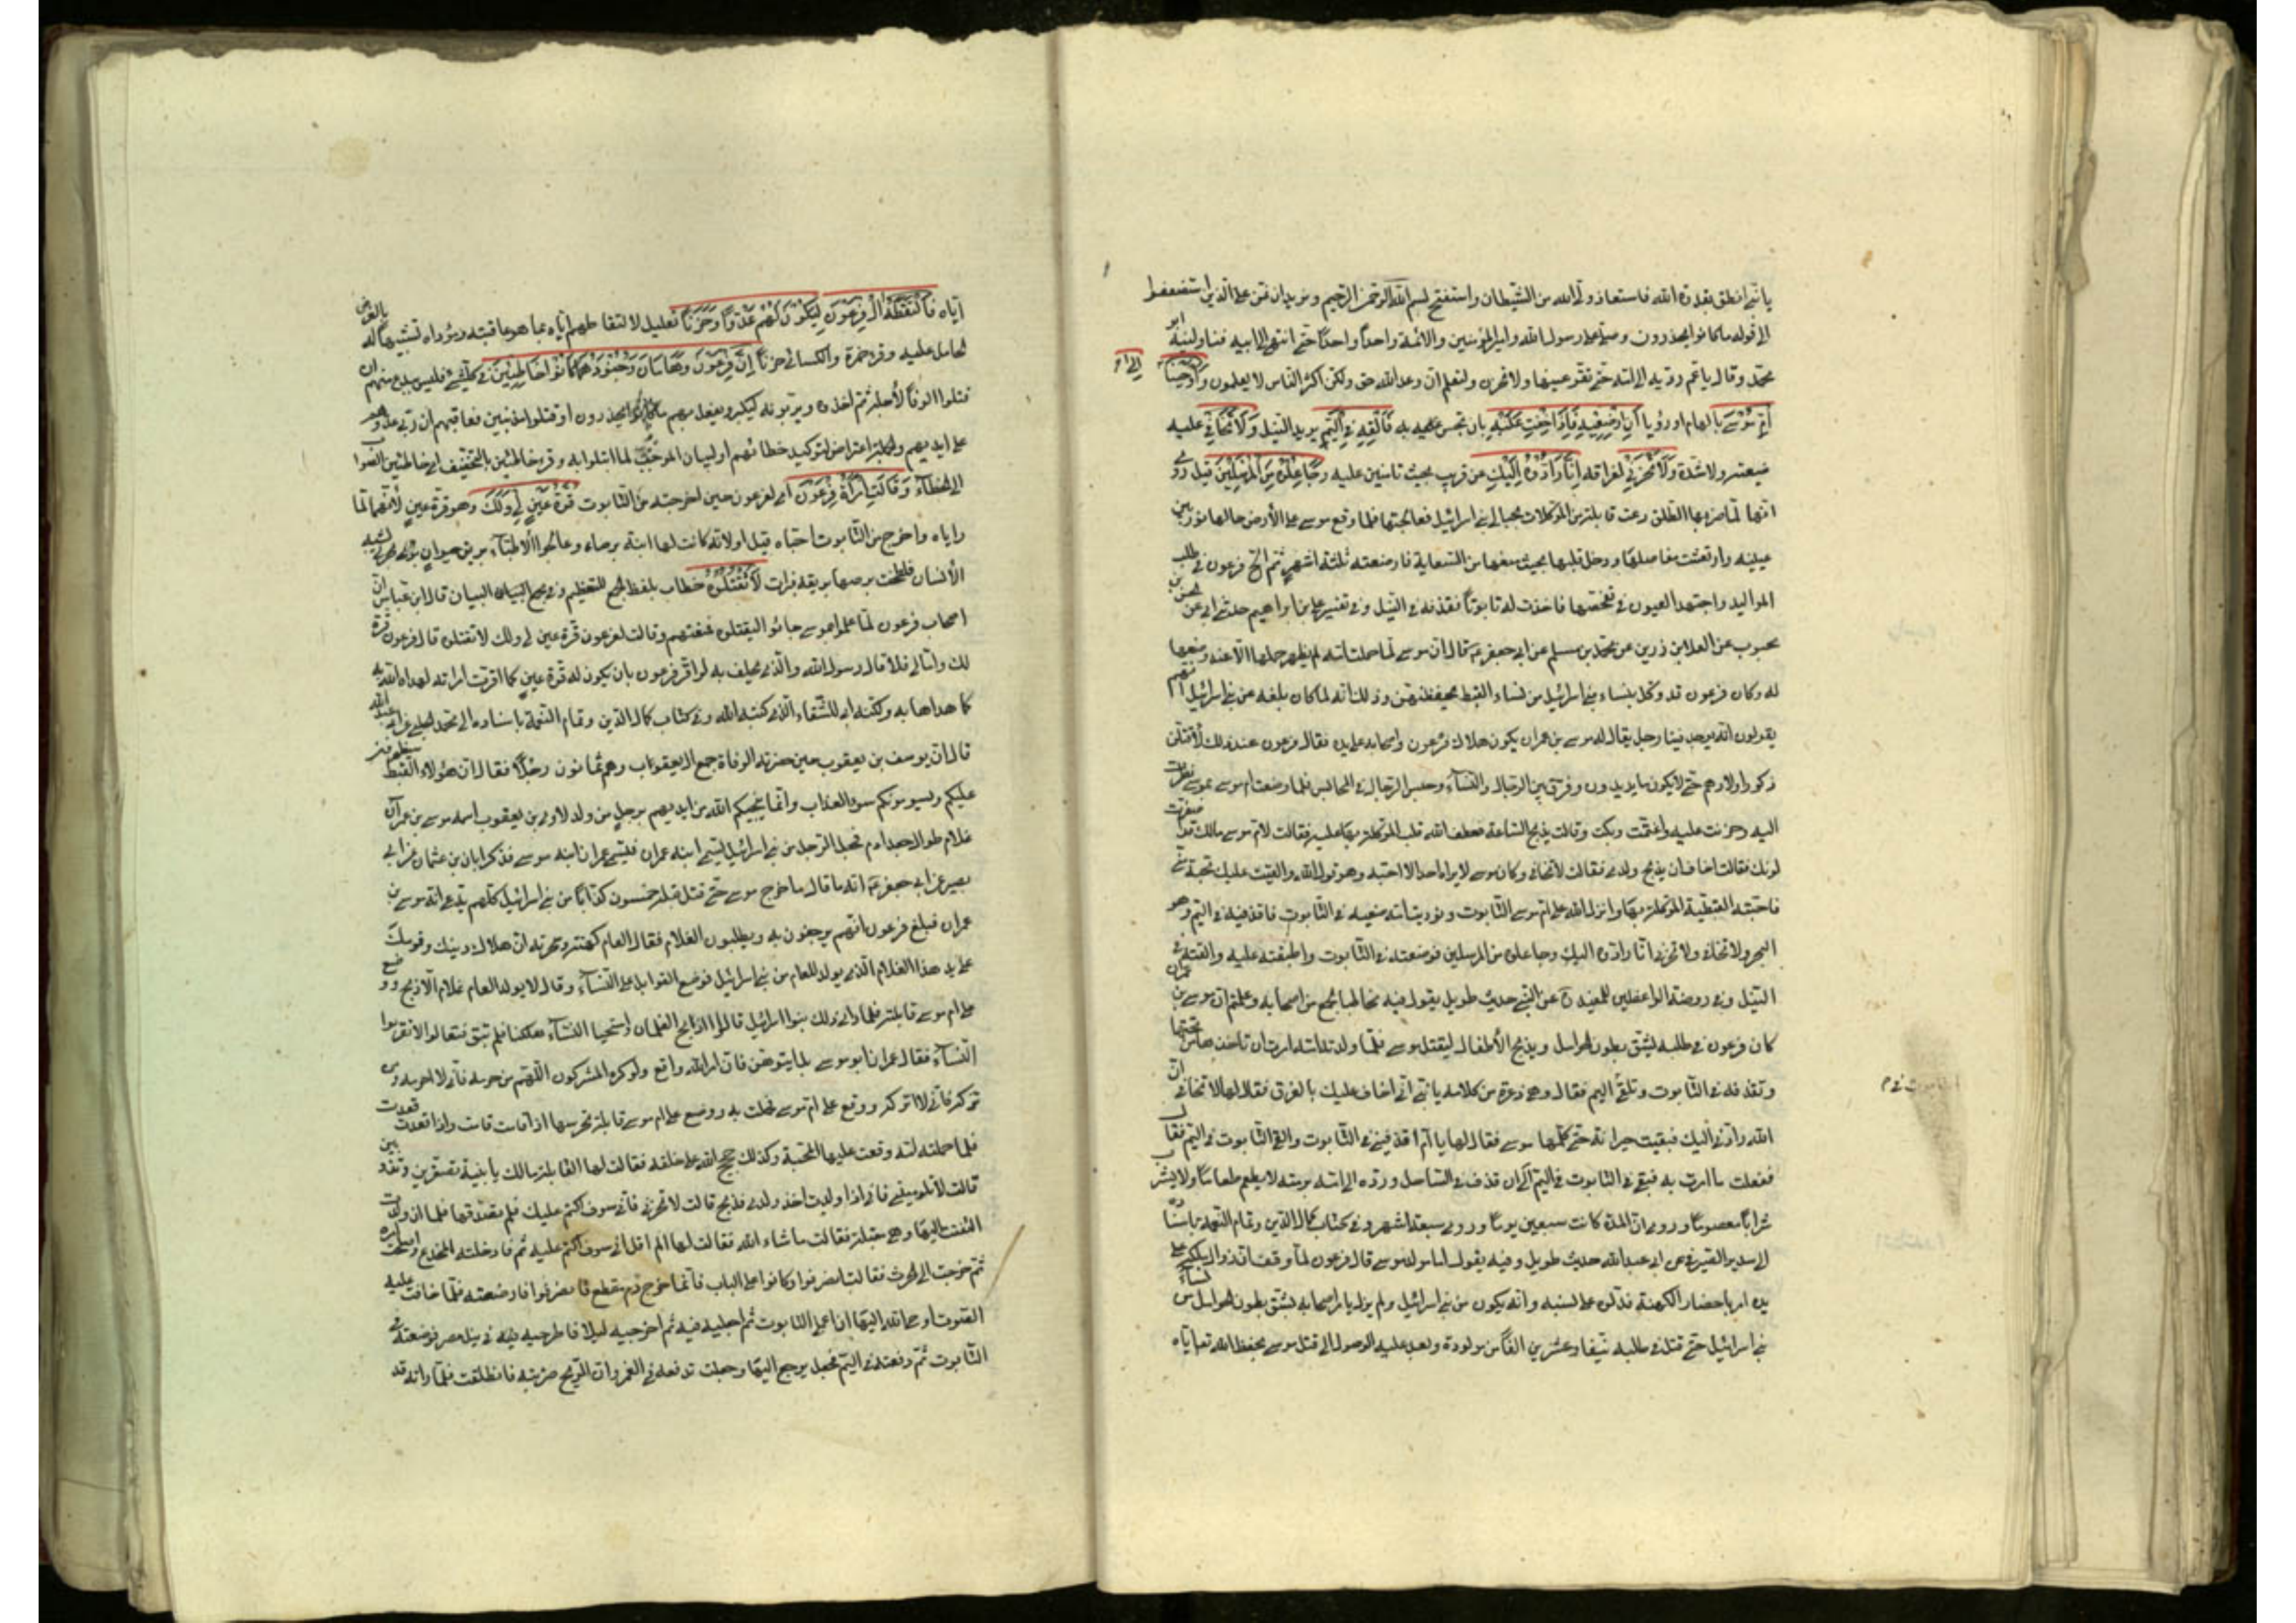 يا بني انطق بقدرة الله فاستعاذ ولي الله من الشيطان واستفتح بسم الله الرحمن الرحيم ونريد ان نمن على الذين استضعفوا
الى قوله ما كانوا يحذرون وصلى على رسول الله وامير المؤمنين والائمة واحدا واحدا حتى انتهى الى ابيه فناولنيه ابو
محمد وقال يا عم رديه الى امه حتى تقر عينها ولا تحزن ولتعلم ان وعد الله حق ولكن اكثر الناس لا يعلمون وَأَوْحَيْنَا إِلَى
أُمِّ مُوسَى بالهام او رؤيا أَنْ أَرْضِعِيهِ فَإِذَا خِفْتِ عَلَيْهِ بان تحس به فَأَلْقِيهِ فِي الْيَمِّ يريد النيل وَلَا تَخَافِي عليه
ضيعة ولا شدة وَلَا تَحْزَنِي لفراقه إِنَّا رَادُّوهُ إِلَيْكِ عن قريب بحيث تامنين عليه وَجَاعِلُوهُ مِنَ الْمُرْسَلِينَ قيل روي
انها لما ضربها الطلق دعت قابلة من الموكلات بحبالى بني اسرائيل فعالجتها فلما وقع موسى على الأرض هالها نور بين
عينيه وارتعشت مفاصلها ودخل قلبها بحيث منعها من السعاية فارضعته ثلثة اشهر ثم الح فرعون في طلب
المواليد واجتهد العيون في تفحصها فاخذت له تابوتا فقذفته في النيل وفي تفسير علي بن ابراهيم حدثني ابي عن الحسن بن
محبوب عن العلا بن رزين عن محمد بن مسلم عن ابي جعفر ع قال ان موسى لما حملت امه لم يظهر حملها الا عند وضعها
له وكان فرعون قد وكل بنساء بني اسرائيل من نساء القبط يحفظنهن وذلك انه لما كان بلغه عن بني اسرائيل انهم
يقولون انه يولد فينا رجل يقال له موسى بن عمران يكون هلاك فرعون واصحابه على يده فقال فرعون عند ذلك لأقتلن
ذكور اولادهم حتى لا يكون ما يريدون وفرق بين الرجال والنساء وحبس الرجال في المحابس فلما وضعت ام موسى بموسى نظرت
اليه وحزنت عليه واغتمت وبكت وقالت يذبح الساعة فعطف الله قلب الموكلة بها عليه فقالت لام موسى مالك قد اصفر
لونك فقالت اخاف ان يذبح ولدي فقالت لا تخافي وكان موسى لا يراه احد الا احبه وهو قول الله والقيت عليك محبة مني
فاحبته القبطية الموكلة بها وانزل الله على ام موسى التابوت ونوديت امه ضعيه في التابوت فاقذفيه في اليم وهو
البحر ولا تخافي ولا تحزني انا رادوه اليك وجاعلوه من المرسلين فوضعته في التابوت واطبقته عليه والقته في
النيل وفي روضة الواعظين للمفيد ره عن النبي حديث طويل يقول فيه مخاطبا لجمع من اصحابه وعلمتم ان موسى بن عمران
كان فرعون في طلبه يشق بطون الحوامل ويذبح الأطفال ليقتل موسى فلما ولدته امه امرت ان تاخذه من تحتها
وتقذفه في التابوت وتلقي اليم فقال وهي ذعرة من كلامه يا بني اني اخاف عليك بالغرق فقال لها لا تخافي ان
الله رادني اليك فبقيت حيرانة حتى كلمها موسى فقال لها يا ام اقذفيني في التابوت والقي التابوت في اليم فقال
ففعلت ما امرت به فبقي في التابوت في اليم الى ان قذفه في الساحل ورده الى امه برمته لا يطعم طعاما ولا يشرب
شرابا معصوما وروي ان المدة كانت سبعين يوما وروي سبعة اشهر وفي كتاب كمال الدين وتمام النعمة باسناده
الى سدير الصيرفي عن ابي عبد الله حديث طويل وفيه يقول اما مولد موسى قال فرعون لما وقف ان زوال ملكه على
يده امر باحضار الكهنة فدلوه على نسبه وانه يكون من بني اسرائيل ولم يزل يامر اصحابه بشق بطون الحوامل من نساء
بني اسرائيل حتى قتل في طلبه نيفا وعشرين الفا من مولود وتعذر عليه الوصول الى قتل موسى بحفظ الله تعالى اياه
اياه فَالْتَقَطَهُ آلُ فِرْعَوْنَ لِيَكُونَ لَهُمْ عَدُوًّا وَحَزَنًا تعليل لالتقاطهم اياه بما هو عاقبته ومؤداه تشبيها له بالغرض
الحامل عليه وقرا حمزة والكسائي حزنا إِنَّ فِرْعَوْنَ وَهَامَانَ وَجُنُودَهُمَا كَانُوا خَاطِئِينَ في كل شيء فليس ببدع منهم ان
قتلوا الوفا لأجله ثم اخذوه ويربونه ليكبر ويفعل بهم ما كانوا يحذرون او مذنبين فعاقبهم ان ربى عدوهم
على ايديهم والجملة اعتراض لتوكيد خطائهم او لبيان الموجب لما ابتلوا به وقرء خاطين بالتخفيف اي خاطين الصواب
الى الخطاء وَقَالَتِ امْرَأَةُ فِرْعَوْنَ اي لفرعون حين اخرجته من التابوت قُرَّةُ عَيْنٍ لِي وَلَكَ وهو قرة عين لأنهما لما
راياه واخرج من التابوت احباه قيل او لانه كانت لها ابنة برصاء وعالجوا الأطباء بريق حيوان بحري يشبه
الأنسان فلطخت برصها بريقه فبرات لَا تَقْتُلُوهُ خطاب بلفظ الجمع للتعظيم وفي مجمع البيان قال ابن عباس ان
اصحاب فرعون لما علموا بموسى جاءوا ليقتلوه فمنعتهم وقالت لفرعون قرة عين لي ولك لا تقتلوه قال فرعون قرة
لك واما لي فلا قال رسول الله والذي يحلف به لو اقر فرعون بان يكون له قرة عين كما اقرت امراته لهداه الله به
كما هداها به ولكنه ابى للشقاء الذي كتبه الله وفي كتاب كمال الدين وتمام النعمة باسناده الى محمد الحلبي عن ابي عبد الله
قال ان يوسف بن يعقوب حين حضرته الوفاة جمع ال يعقوب وهم ثمانون رجلا فقال ان هؤلاء القبط سيظهرون
عليكم ويسومونكم سوء العذاب وانما ينجيكم الله من ايديهم برجل من ولد لاوي بن يعقوب اسمه موسى بن عمران
غلام طوال جعد ادم فجعل الرجل من بني اسرائيل يسمي ابنه عمران ويسمي عمران ابنه موسى فذكر ابان بن عثمان عن ابي
بصير عن ابي جعفر ع انه ما قال ما خرج موسى حتى قتل قبله خمسون كذابا من بني اسرائيل كلهم يدعي انه موسى بن
عمران فبلغ فرعون انهم يرجفون به ويطلبون الغلام فقال له كهنته وسحرته ان هلاك دينك وقومك
على يد هذا الغلام الذي يولد العام من بني اسرائيل فوضع القوابل على النساء وقال لا يولد العام غلام الا ذبح ووضع
على ام موسى قابلة فلما راى ذلك بنوا اسرائيل قالوا اذا ذبح الغلمان واستحيا النساء هلكنا فلم نبق فتعالوا لا نقرب
النساء فقال عمران ابو موسى بل ايتوهن فان امر الله واقع ولو كره المشركون اللهم من حرمه فاني لا احرمه ومن
تركه فاني لا اتركه ووقع على ام موسى فحملت به ووضع على ام موسى قابلة تحرسها اذا قامت قامت واذا قعدت قعدت
فلما حملته امه وقعت عليها المحبة وكذلك حجج الله على خلقه فقالت لها القابلة مالك يا بنية تصفرين وتذوبين
قالت لا تلوميني فاني اذا ولدت اخذ ولدي فذبح قالت لا تحزني فاني سوف اكتم عليك فلم تصدقها فلما ان ولدت
التفتت اليها وهي مقبلة فقالت ما شاء الله فقالت لها الم اقل اني سوف اكتم عليك ثم حملته فادخلته المخدع واصلحت امره
ثم خرجت الى الحرس فقالت انصرفوا وكانوا على الباب فانما خرج دم منقطع فانصرفوا فارضعته فلما خافت عليه
الصوت اوحى الله اليها ان اعملي التابوت ثم اجعليه فيه ثم اخرجيه ليلا فاطرحيه في نيل مصر فوضعته في
التابوت ثم دفعته في اليم فجعل يرجع اليها وجعلت تدفعه في الغمر وان الريح ضربته فانطلقت فلما راته قد